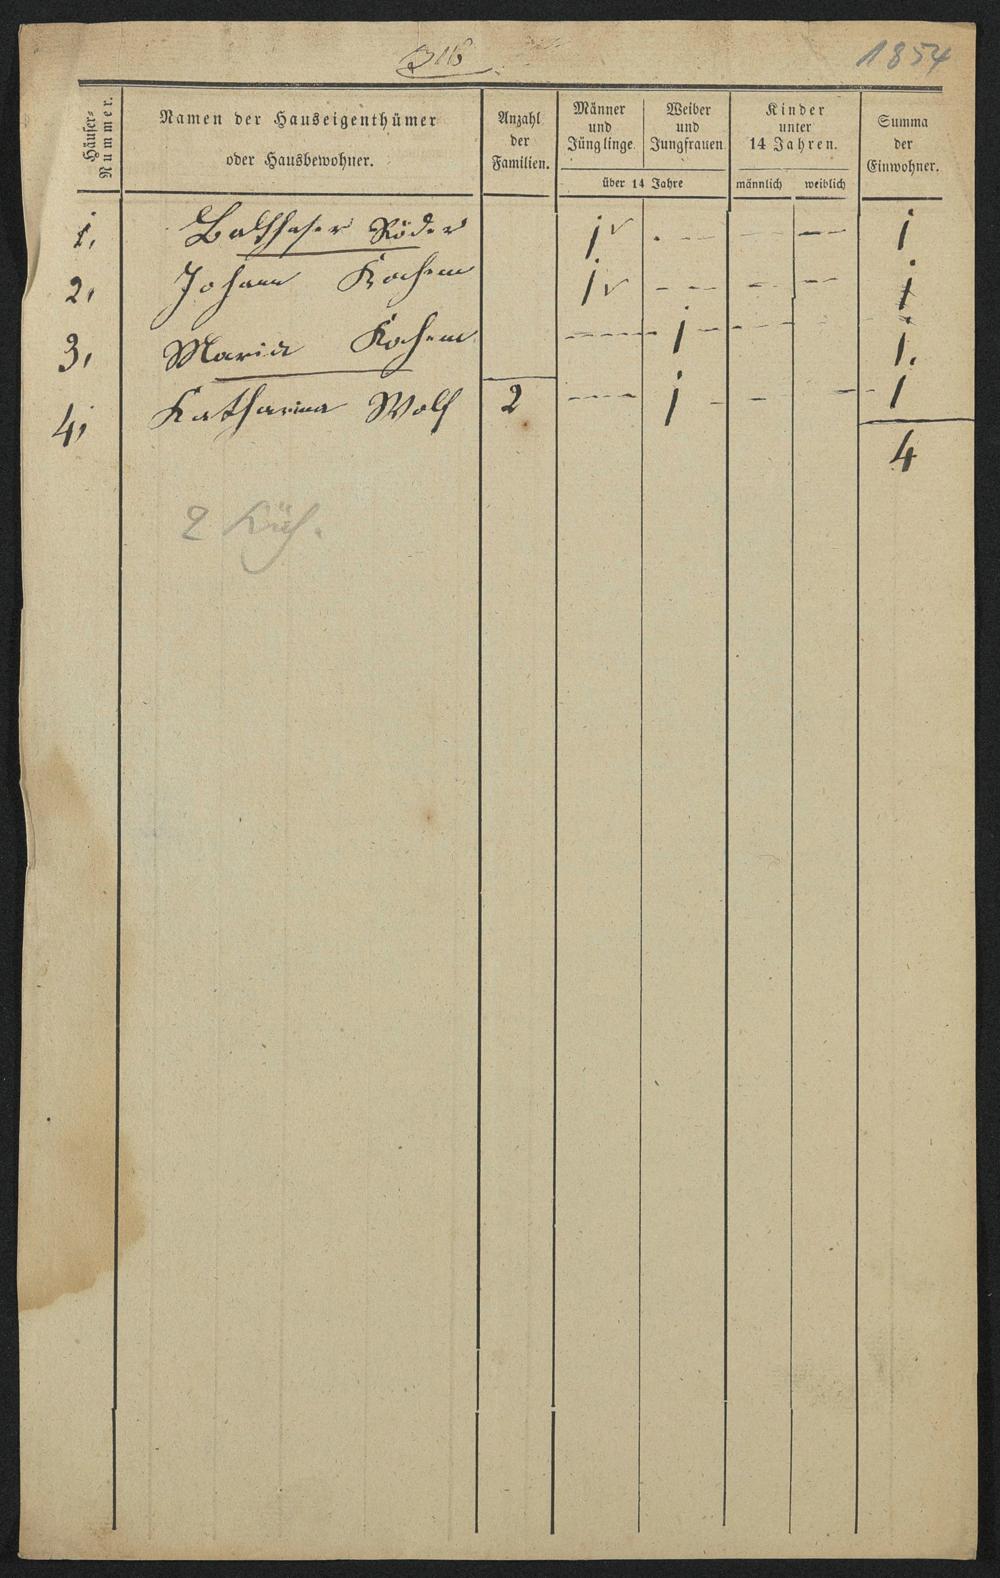 1854
Häuser-Nummer.
Namen der Hauseigenthümer
oder Hausbewohner.
Anzahl
der
Familien.
Männer
und
Jünglinge
Weiber
und
Jungfrauen
über 14 Jahre
Kinder
unter
14 Jahren.
männlich weiblich
Summa
der
Einwohner.
1, Balthaser Röder 1 - - - 1
2, Johann Kochem 1 - - - 1
3, Maria Kochem - 1 - - 1.
4, Katharina Wolf 2 - 1 - - 1
4
2 Küh.